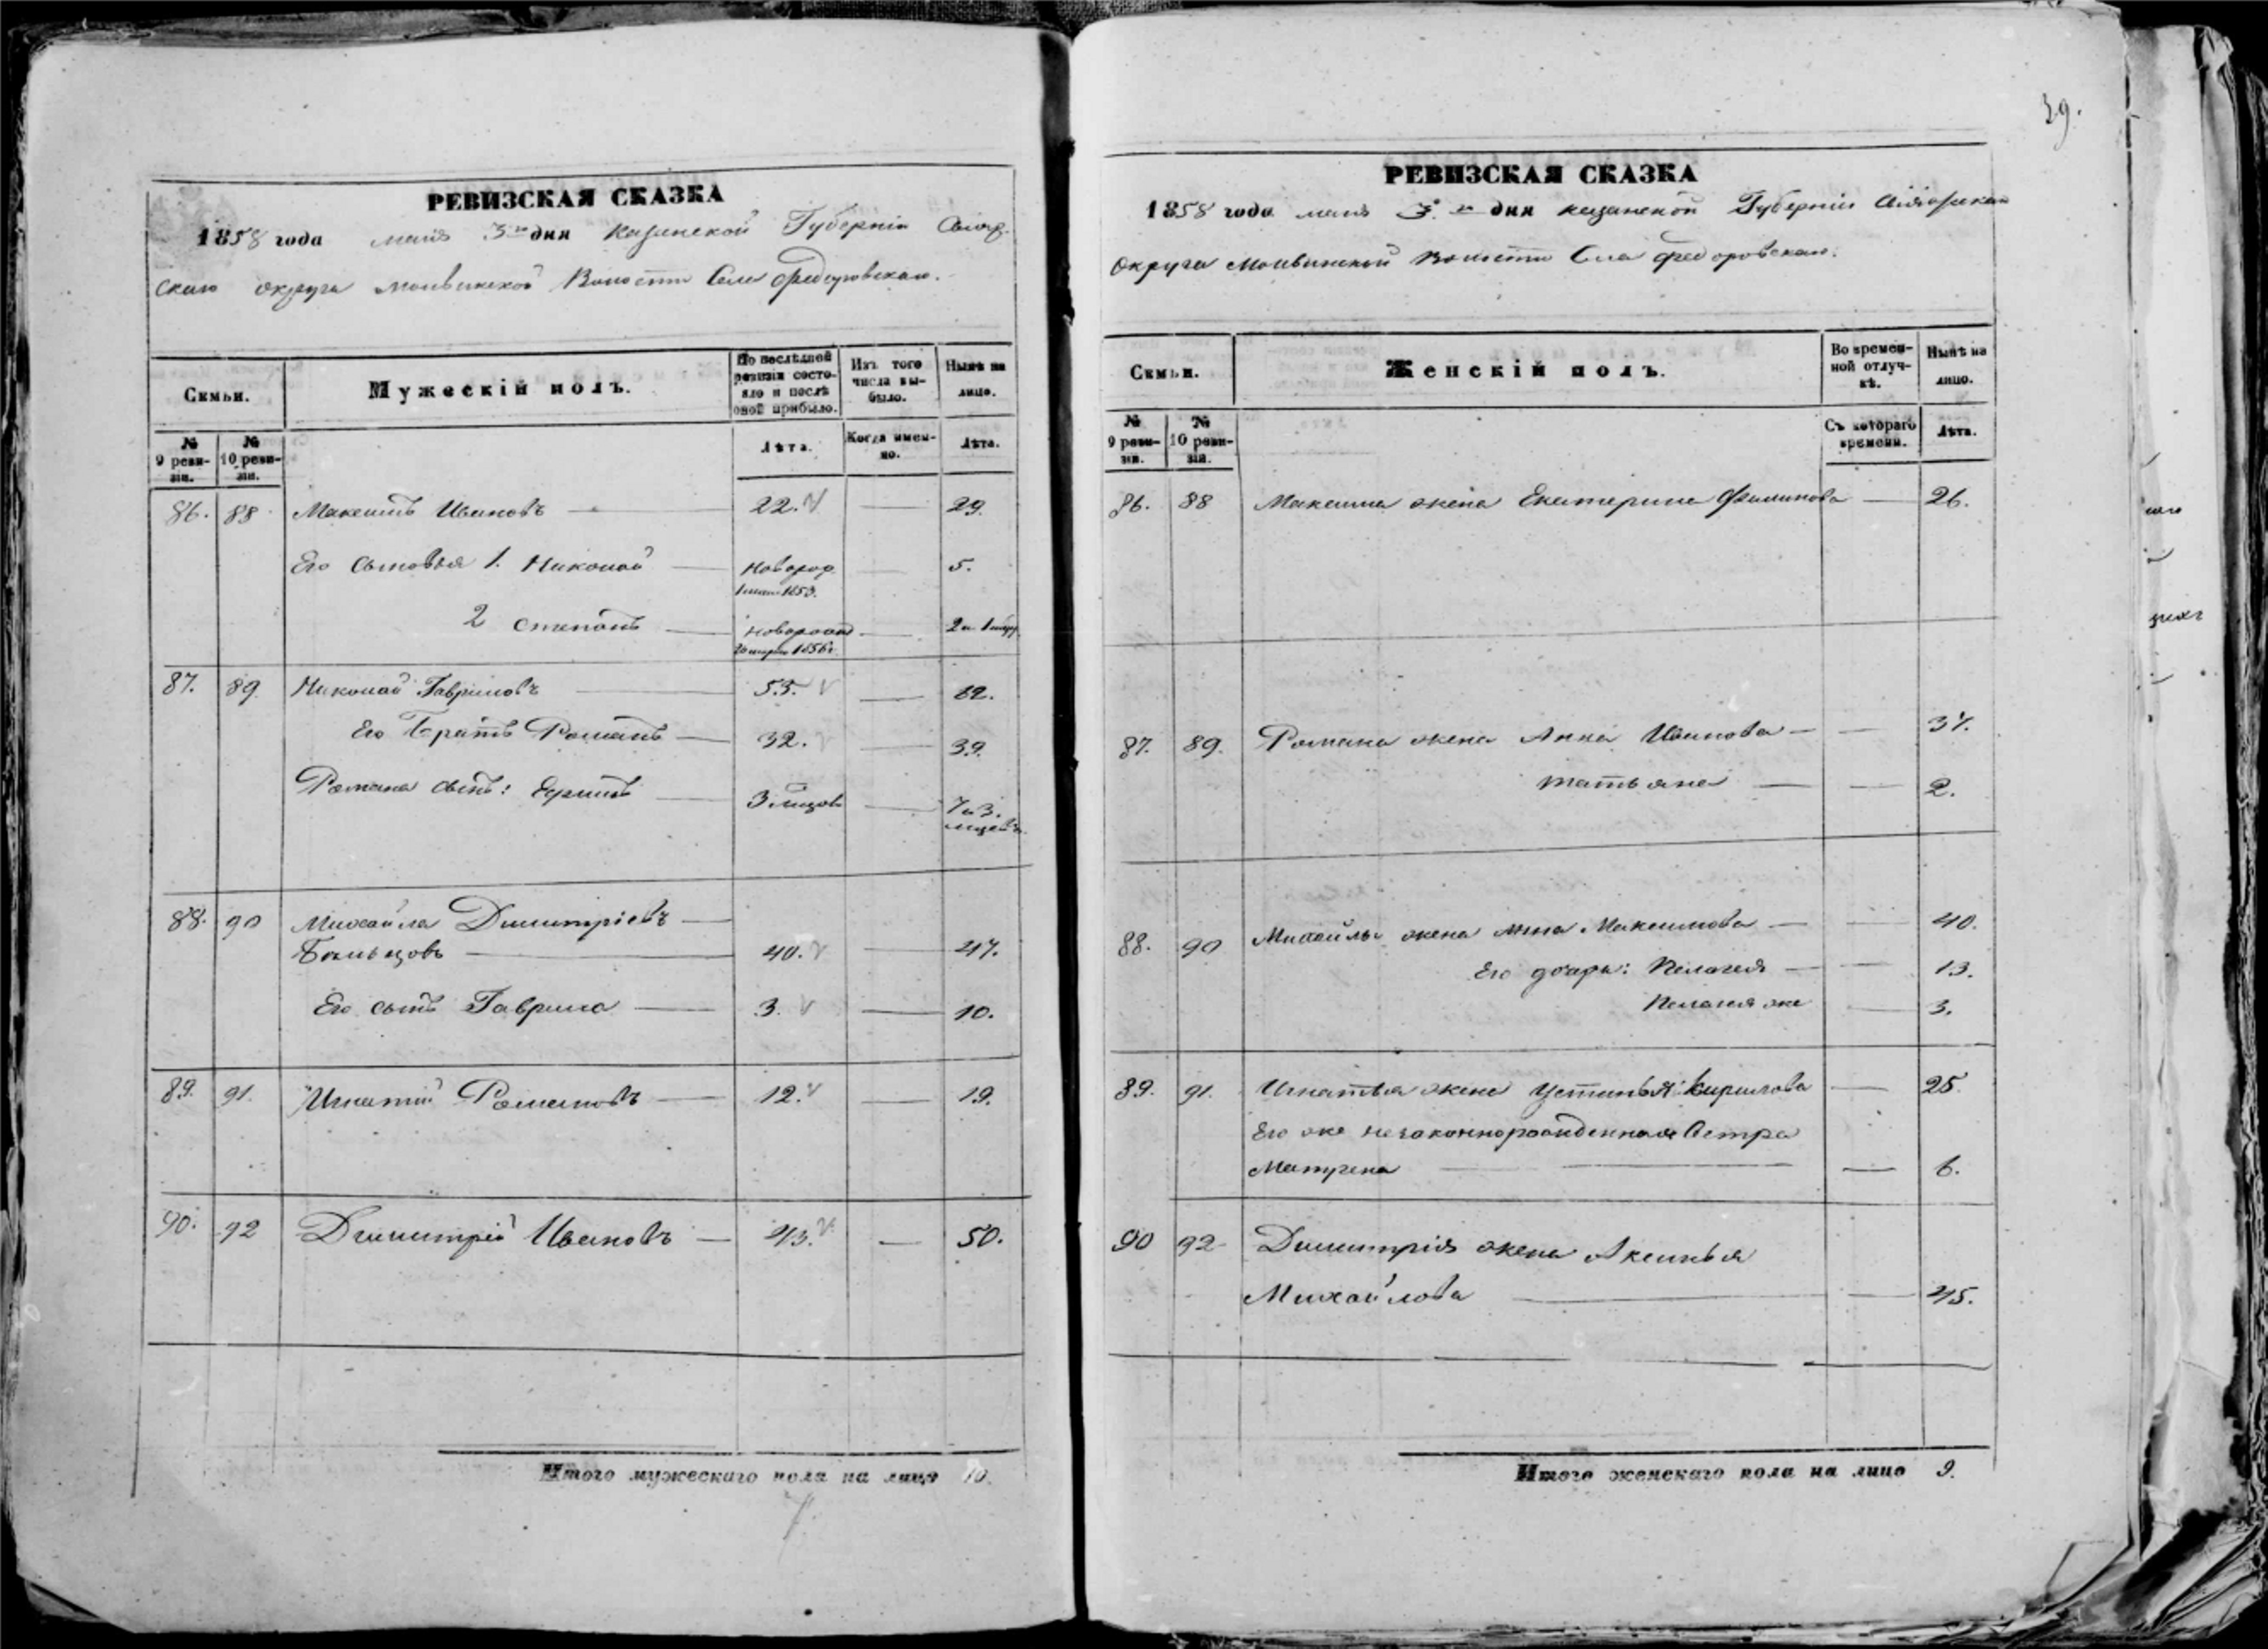 39.
РЕВИЗСКАЯ СКАЗКА
1858 года мая 3го дня Казанской Губерніи Свіяж-
скаго округа Молвинской Волости Села Федоровскаго.
Семьи.
Мужескій полъ.
По послѣдней ревизіи состояло и послѣ оной прибыло.
Изъ того числа выбыло.
Нынѣ на лицо.
№ 9 ревизіи.
№ 10 ревизіи.
Лѣта.
Когда именно.
Лѣта.
86. 88 Максимъ Ивановъ — 22. — 29.
Его сыновья 1. Николай — новорож. — 5.
1853.
2 Степанъ — новорожд — 2 и 1
1856 г.
87. 89. Николай Гавриловъ — 55. — 62.
Его Братъ Романъ — 32. — 39.
Романа сынъ: Ефимъ — 3 мѣсяцовъ — 7 и 3.
мѣсяцевъ
88. 90 Михайла Дмитріевъ —
40. — 47.
Его сынъ Гаврила — 3. — 10.
89. 91. Игнатій Романовъ — 12. — 19.
90. 92 Димитрій Ивановъ — 43. — 50.
Итого мужескаго пола на лицо 10.
РЕВИЗСКАЯ СКАЗКА
1858 года мая 3го дня Казанской Губерніи Свіяжскаго
Округа Молвинской Волости Села Федоровскаго.
Семьи.
Женскій полъ.
Во временной отлучкѣ.
Нынѣ на лицо.
№ 9 ревизіи.
№ 10 ревизіи.
Съ котораго времени.
Лѣта.
86. 88 Максима жена Екатерина Филипова — 26.
87. 89. Романа жена Анна Иванова — — 37.
Татьяна — — 2.
88. 90 Михайлы жена Анна Максимова — — 40.
Его дочери: Пелагея — — 13.
Пелагея же — 3.
89. 91. Игнатья жена Устинья Кирилова — 25.
Его же незаконнорожденная Сестра
Матрена — — — 6.
90 92 Димитрія жена Аксинья
Михайлова — — 45.
Итого женскаго пола на лицо 9.